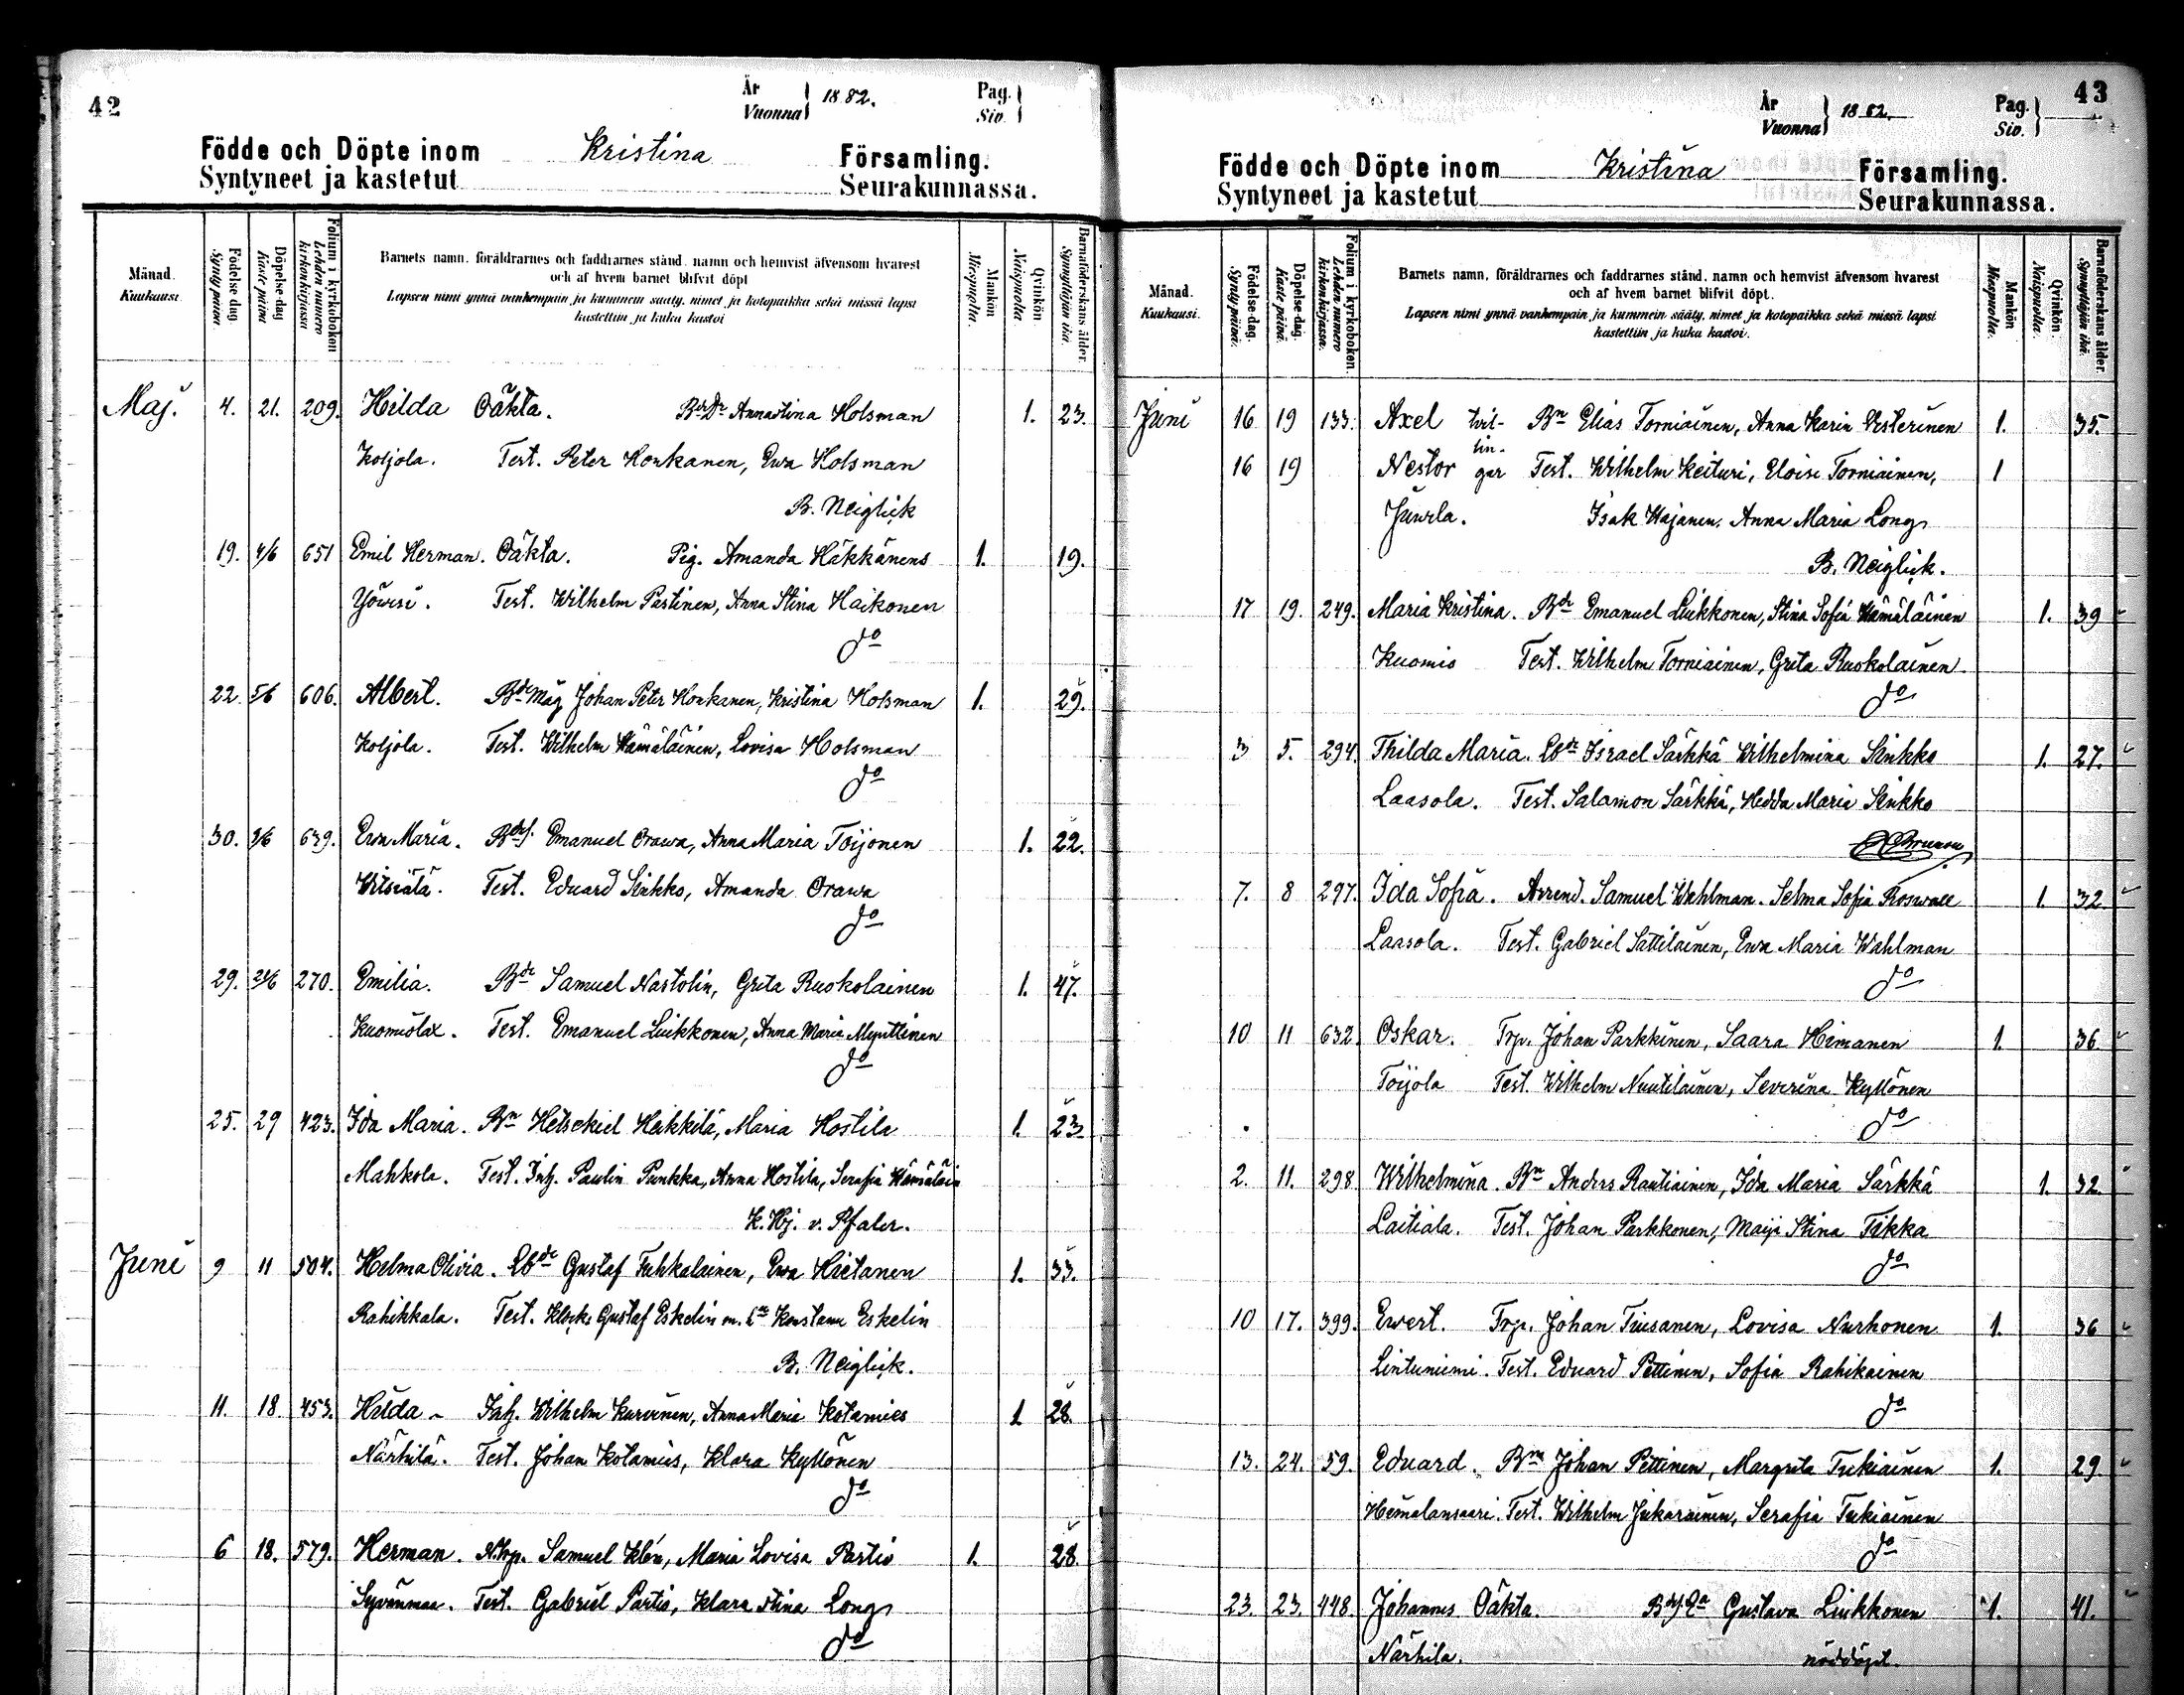 42
År
Vuonna
1882.
Pag.
Siv.
Födde och Döpte inom Kristina Församling.
Syntyneet ja kastetut Seurakunnassa.
Månad.
Kuukausi.
Födelse dag.
Synty päivä.
Döpelse-dag
Kaste päivä
Folium i kyrkoboken
Lehden numero kirkonkirjassa
Barnets namn, föräldrarnes och faddrarnes stånd, namn och hemvist äfvensom hvarest
och af hvem barnet blifvit döpt
Lapsen nimi ynnä vanhempain ja kummein sääty, nimet ja kotopaikka sekä missä lapsi
kastettiin ja kuka kastoi
Mankön
Miespuolta.
Qvinkön
Naispuolta
Barnaföderskans ålder.
Synnyttäjän ikä.
Maj. 4. 21. 209. Hilda Oäkta. Annastina Holsman 1. 23.
Koljola. Test. Peter Honkanen, Ewa Holsman
B. Neiglick
19. 4/6 651 Emil Herman. Oäkta. Pig. Amanda Häkkänens 1. 19.
Test. Wilhelm Partinen, Anna Stina Haikonen
do
22. 5/6 606. Albert. Bde Måg Johan Peter Honkanen, Kristina Holsman 1. 29.
Koljola. Test. Wilhelm Hämäläinen, Lovisa Holsman
do
30. 639. Ewa Maria. Emanuel Orawa, Anna Maria Toijonen 1. 22.
Witsiälä. Test. Eduard Sinkko, Amanda Orawa
do
29. 270. Emilia. Bde Samuel Nastolin, Grita Ruokolainen 1. 47.
Kuomiolax. Test. Emanuel Liukkonen, Anna Maria Mynttinen
do
25. 29 423. Ida Maria. Bn Hetsekiel Heikkilä, Maria Hostila 1. 23.
Mahkola. Test. Inh. Paulin Punkka, Anna Hostila, Serafia Hämäläin
K. Hj. v. Pfaler.
Juni 9 11 504. Helma Olivia. Lbde Gustaf Tuhkalainen, Ewa Hietanen 1. 33.
Rahikkala. Test. Klock. Gustaf Eskelin m. Konstance Eskelin
B. Neiglick.
11. 18. 453. Hilda Inh. Wilhelm Kurvinen, Anna Maria Kotamies 1 28.
Närhilä. Test. Johan Kotamies, Klara Kyllönen
do
6 18. 579. Herman. N.trp. Samuel Klén, Maria Lovisa Partio 1. 28.
Syvänmaa. Test. Gabriel Partio, Klara Stina Long
do
43
År
Vuonna
1882.
Pag.
Siv.
Födde och Döpte inom Kristina Församling.
Syntyneet ja kastetut Seurakunnassa.
Månad.
Kuukausi.
Födelse dag.
Synty päivä.
Döpelse-dag.
Kaste päivä.
Folium i kyrkoboken.
Lehden numero kirkonkirjassa.
Barnets namn, föräldrarnes och faddrarnes stånd, namn och hemvist äfvensom hvarest
och af hvem barnet blifvit döpt.
Lapsen nimi ynnä vanhempain ja kummein sääty, nimet ja kotopaikka sekä missä lapsi
kastettiin ja kuka kastoi.
Mankön
Miespuolta.
Qvinkön
Naispuolta.
Barnaföderskans ålder.
Synnyttäjän ikä.
Juni 16 19 133. Axel tvil- Bn Elias Torniainen, Anna Karin Vesterinen 1. 35.
lin-
16 19 Nestor gar Test. Wilhelm Keituri, Eloise Torniainen, 1
Isak Hajanen. Anna Maria Long
B. Neiglick.
17 19. 249. Maria Kristina. Bde Emanuel Liukkonen, Stina Sofia Hämäläinen 1. 39
Kuomio Test. Wilhelm Torniainen, Grita Ruokolainen
do
3 5. 294. Thilda Maria. Lbde Israel Särkkä Wilhelmina Sinkko 1. 27.
Laasola. Test. Salamon Särkkä, Hedda Maria Sinkko
Brunou
7. 8 297. Ida Sofia. Arrend. Samuel Wahlman. Selma Sofia Roswall 1. 32.
Laasola. Test. Gabriel Sattilainen, Ewa Maria Wahlman
do
10 11 632 Oskar. Trp. Johan Parkkinen, Saara Himanen 1. 36.
Toijola Test. Wilhelm Nuutilainen, Severina Kyllönen
do
2. 11. 298 Wilhelmina. Bn Anders Rautiainen, Ida Maria Särkkä 1. 32.
Laitiala. Test. Johan Parkkonen, Maija Stina Tikka
do
10 17. 399. Ewert. Trp. Johan Tiusanen, Lovisa Nurhonen 1. 36
Lintuniemi. Test. Eduard Pettinen, Sofia Rahikainen
do
13. 24. 59. Eduard. Bn Johan Pettinen, Margreta Tukiainen 1. 29
Heimalansaari. Test. Wilhelm Jukarainen, Serafia Tukiainen
do
23. 23. 448. Johannes Oäkta. Gustava Liukkonen 1. 41.
Närhilä. nöddöpt.